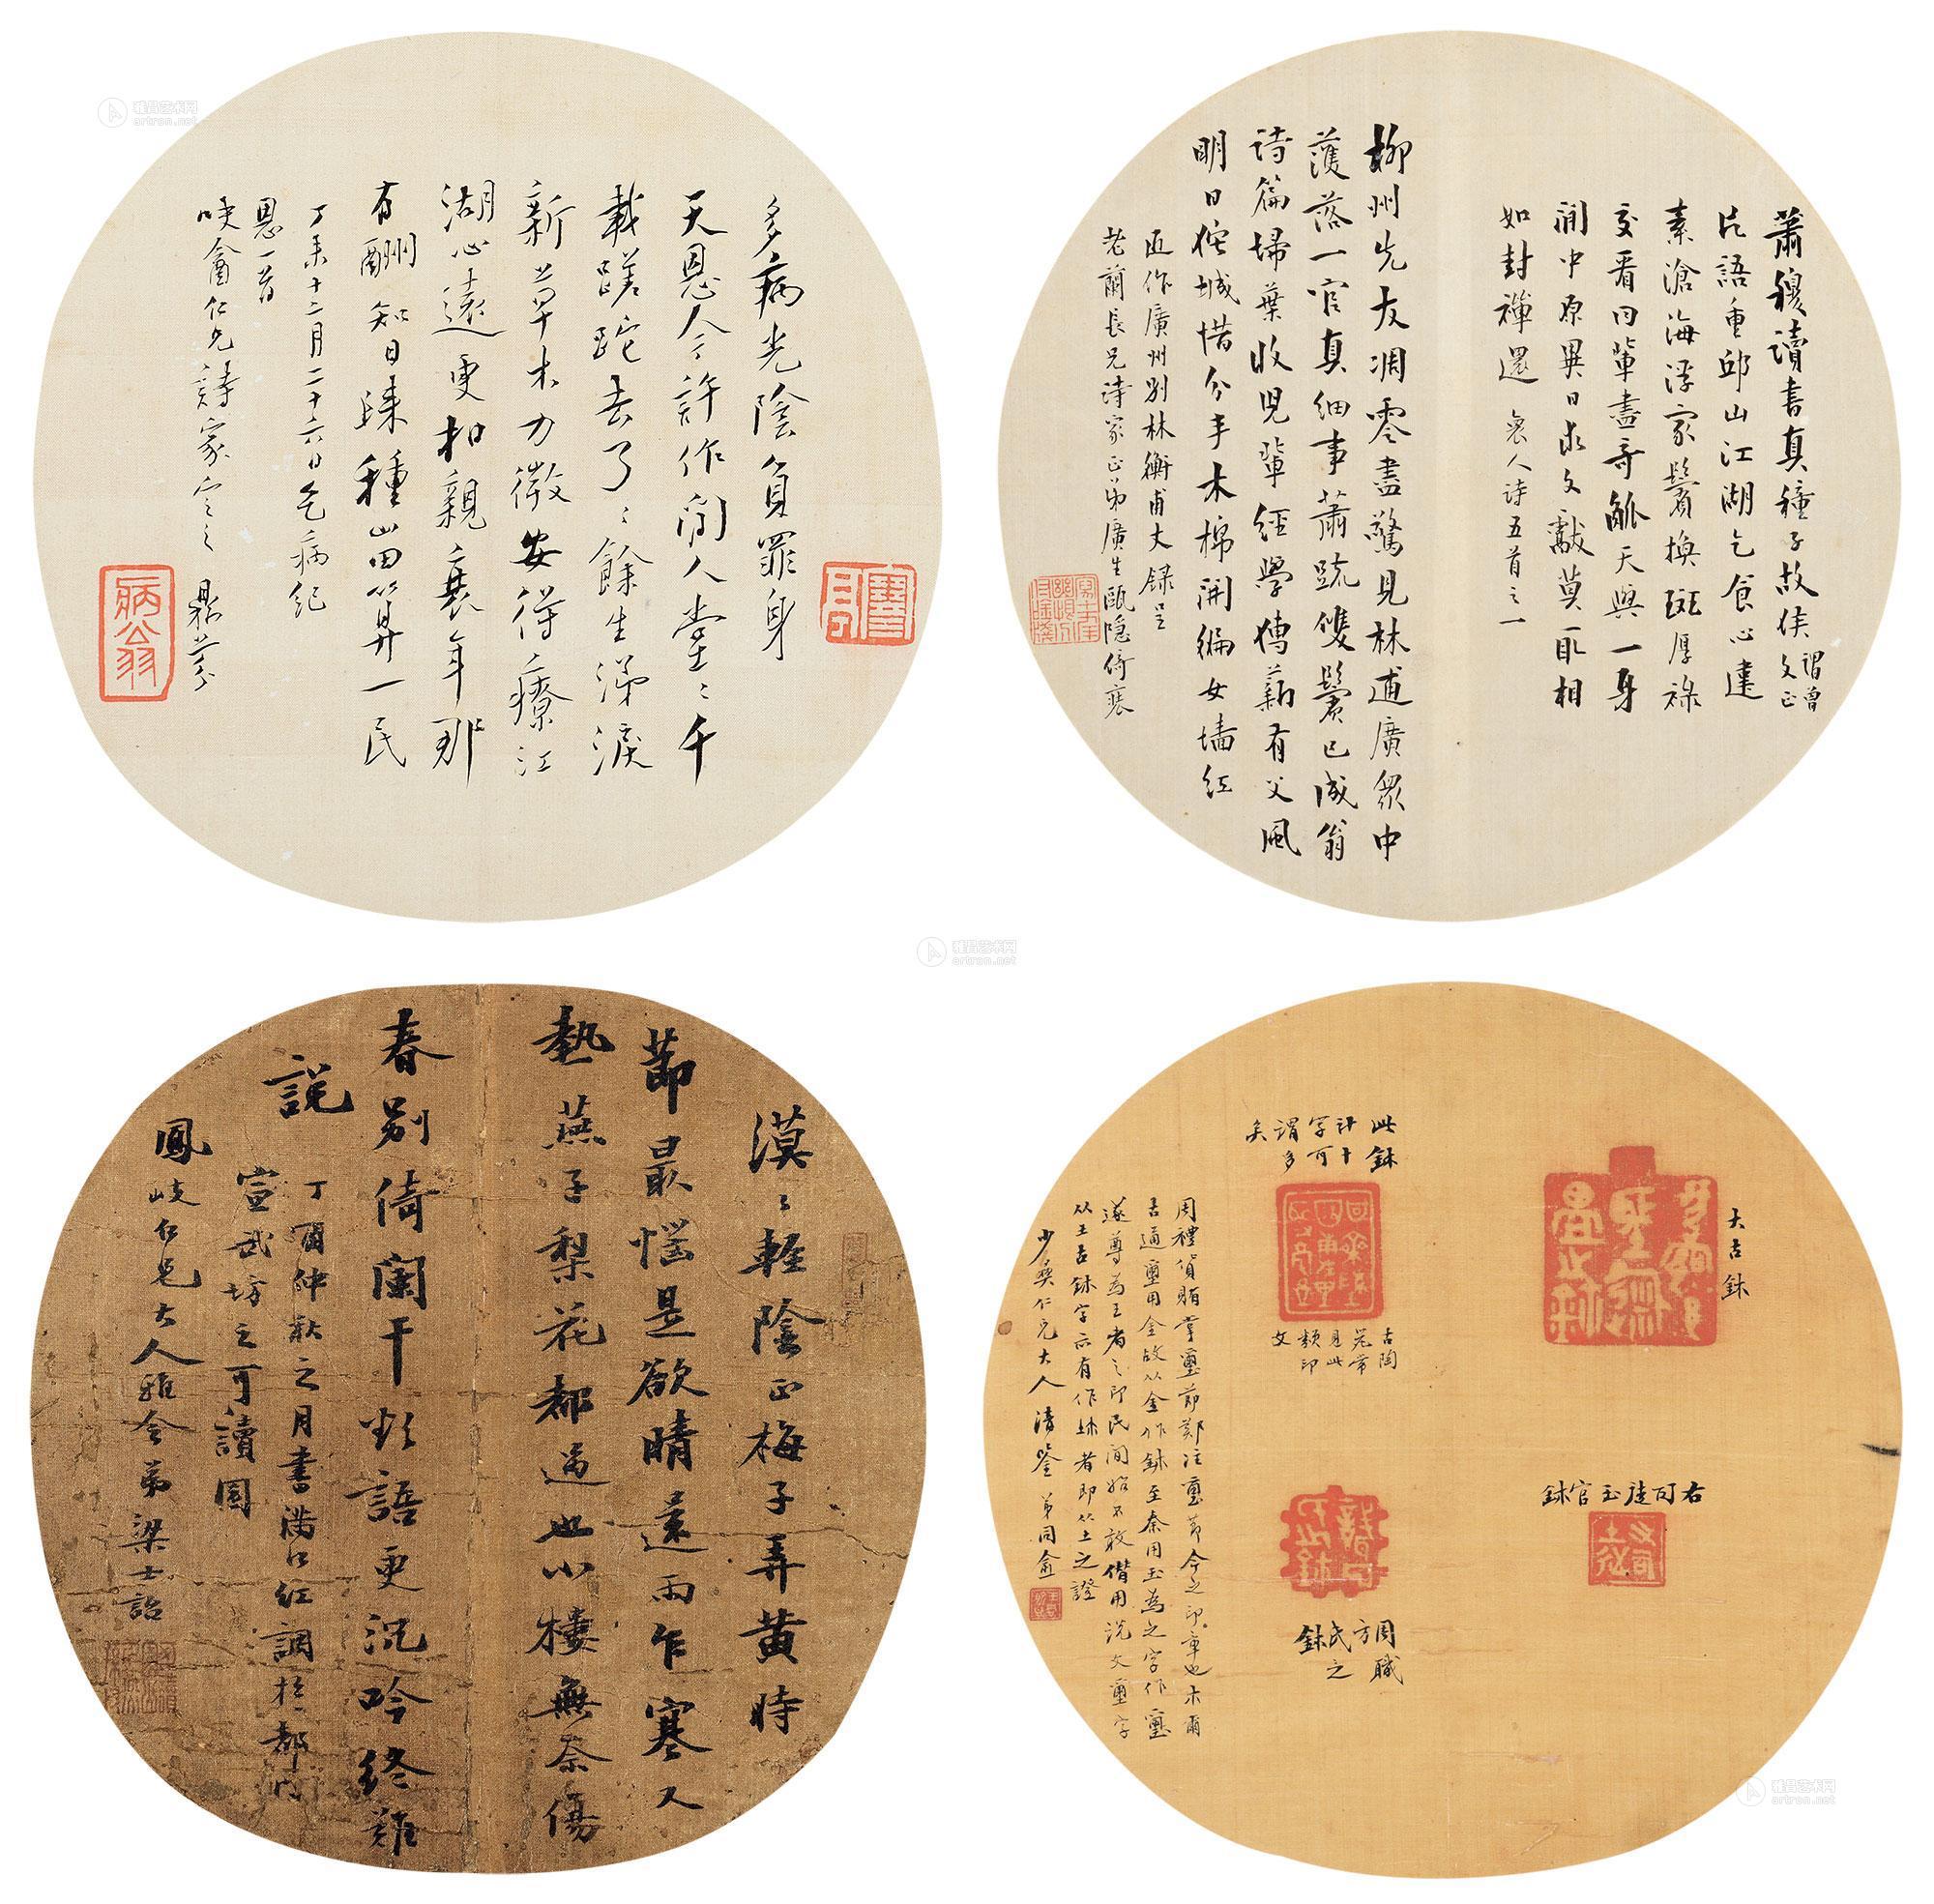 多病光陰負罪身
天恩今許作閒人堂〻千
載蹉跎去了〻餘生涕淚
新草木力微安得療江
湖心遠更相親衰年那
有酬知日歸種山田算一民
丁未十二月二十六日乞病紀
恩一首
噗盦仁兄詩家定之 鼎芬
病翁
蕭穆讀書真種子故侯謂曾文正
片語重邱山江湖乞食心違
素滄海浮家鬢換斑厚祿
交看同輩盡奇觚天與一身
閒中原異日求文獻莫取相
如封禪還 袌人诗五首之一
柳州先友凋零盡驚見林逋廣眾中
濩落一官真細事蕭疏雙鬢已成翁
诗篇掃葉收兒輩經學傳薪有父風
明日佗城惜分手木棉開徧女墻紅
近作廣州别林衡甫丈録呈
老蘭長兄诗家正弟廣生甌隱倚裝
漠〻輕陰正梅子弄黄時
節最惱是欲晴還雨乍寒又
熱燕子梨花都過也小樓無奈傷
春别倚闌干欲語更沉吟終難
説
丁酉仲秋之月書满江红調於都門
宣武坊之可讀園
鳳岐仁兄大人雅令弟梁士詒
大古鉢
右司徒玉官鉢
此鉢
計十
字可
謂多
矣
古陶
器常
見此
類印
文
周職
方氏
之鉢
周禮貨賄掌璽節鄭注璽節今之印章也木爾
古通璽用金故从金作鉢至秦用玉為之字作璽
遂尊為王者之印民間始不敢僭用说文璽字
从土古鉢字亦有作坏者即从土之證
少儀仁兄大人清鑒 弟同愈
雅昌艺术网
artron.net
雅昌艺术网
artron.net
雅昌艺术网
artron.net